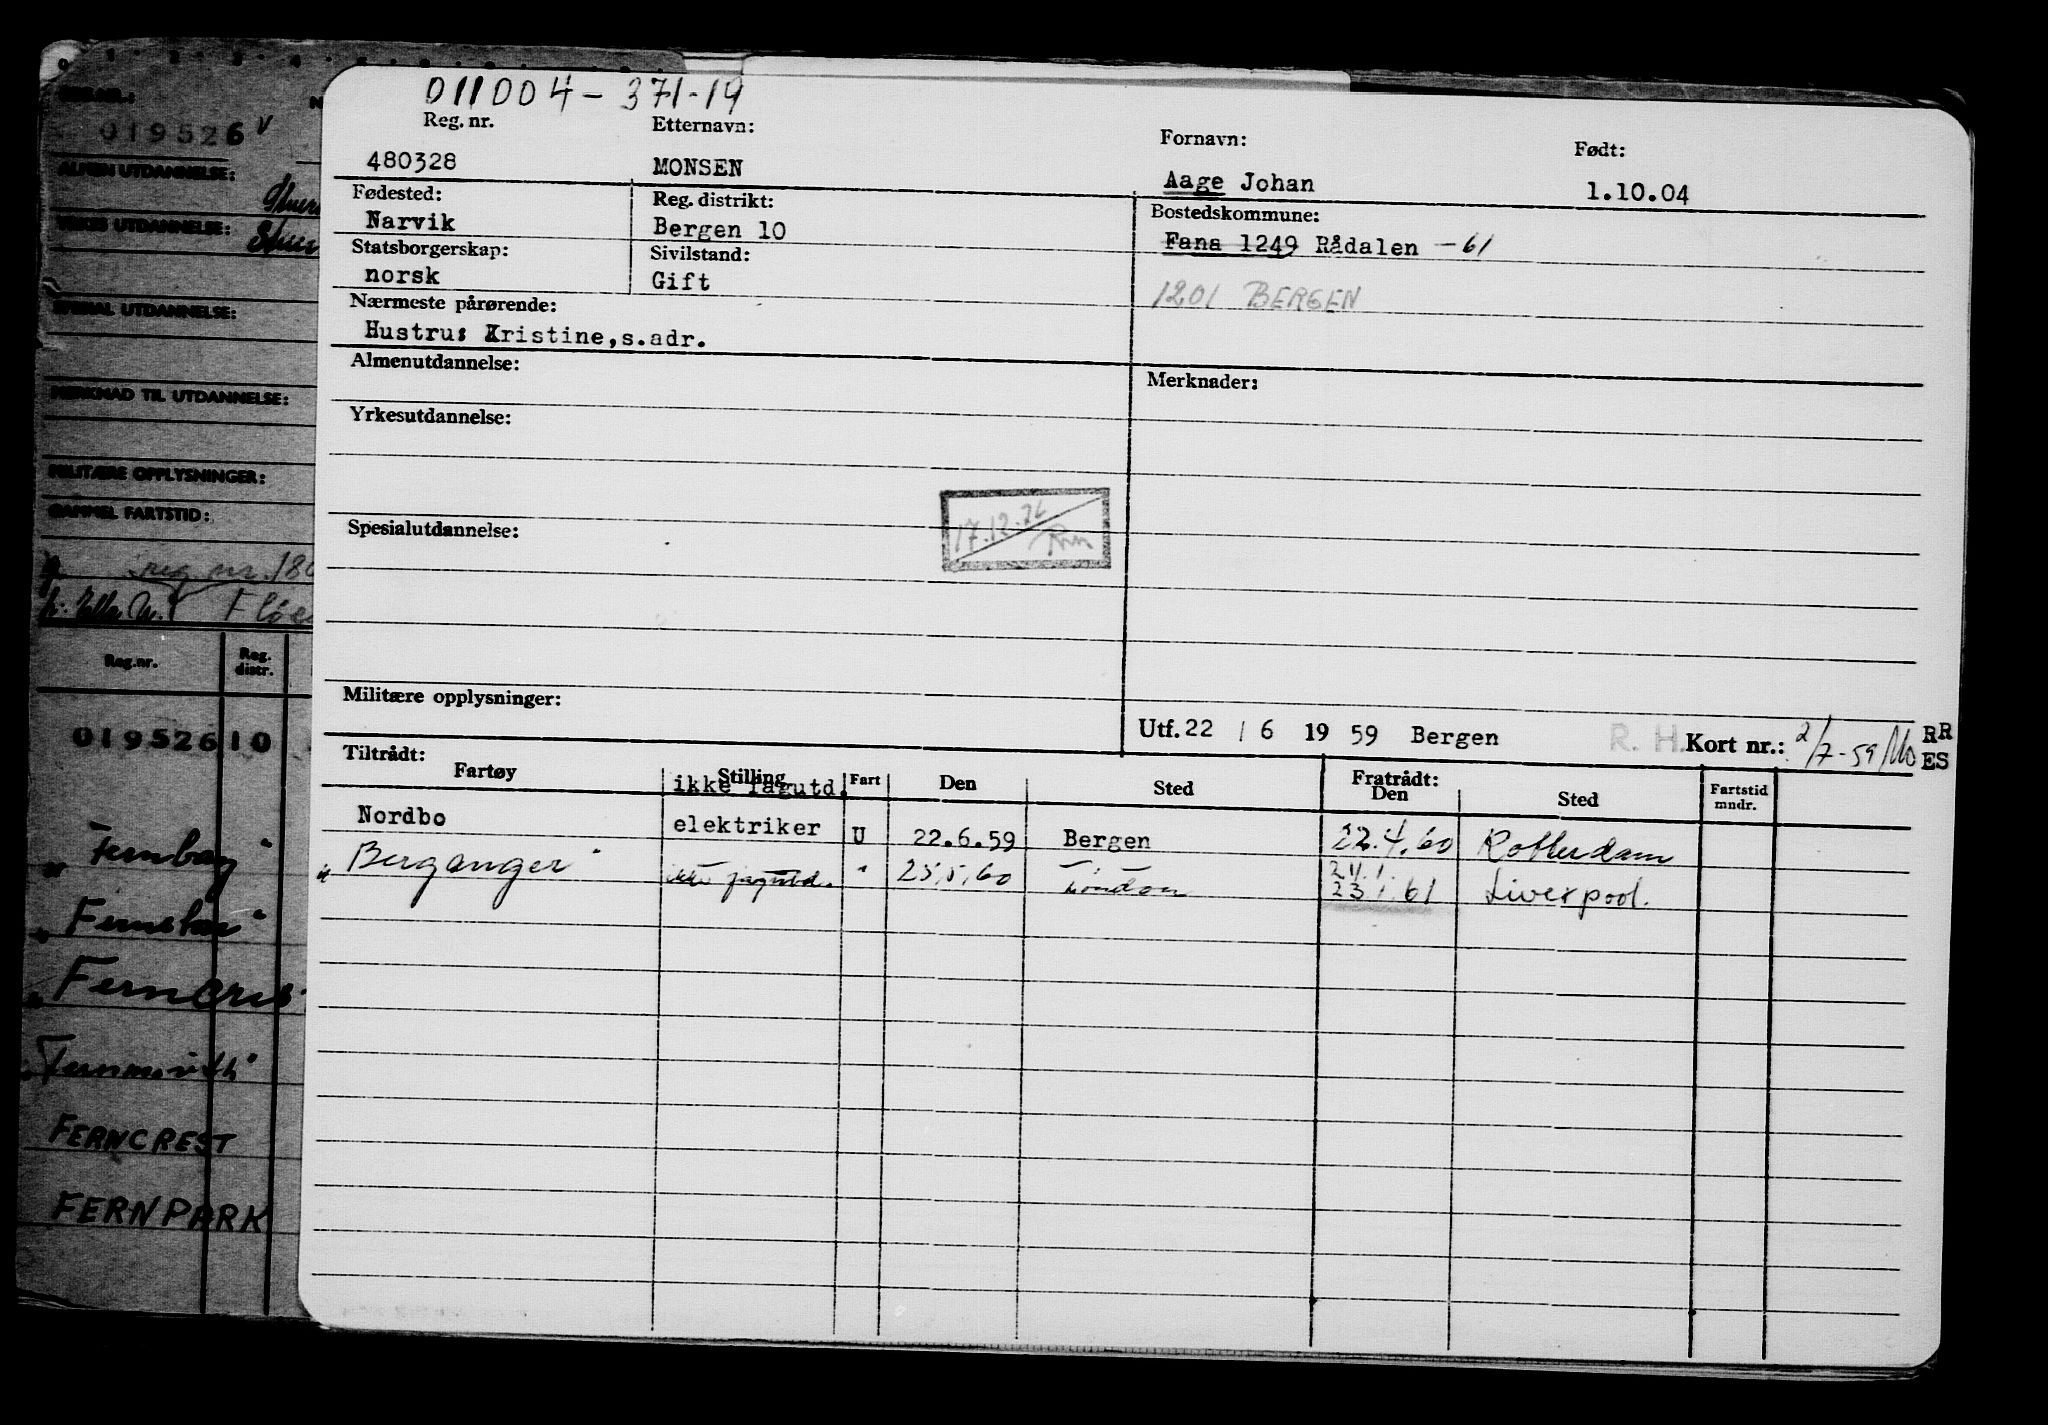 011004-371-19
Reg. nr. Etternavn: Fornavn: Født:
480328 MONSEN Aage Johan 1.10.04
Fødested: Reg. distrikt: Bostedskommune:
Narvik Bergen 10 Fana 1249 Rådalen -61
Statsborgerskap: Sivilstand:
norsk Gift 1201 BERGEN
Nærmeste pårørende:
Hustru: Kristine,s.adr.
Almenutdannelse: Merknader:
Yrkesutdannelse:
Spesialutdannelse:
17.12.76
Militære opplysninger:
Utf. 22 / 6 19 59 Bergen R. H. Kort nr.: 2/7-59/Mo RR
ES
Tiltrådt: Fratrådt:
Fartøy Stilling Fart Den Sted Den Sted Fartstid mndr.
ikke fagutd.
Nordbo elektriker U 22.6.59 Bergen 22.4.60 Rotterdam
"Beranger" ikke fagutd. " 25.5.60 London 23.1.61 Liverpool.
019526 V
ALMEN UTDANNELSE:
YRKES UTDANNELSE:
SPESIAL UTDANNELSE:
MERKNAD TIL UTDANNELSE:
MILITÆRE OPPLYSNINGER:
GAMMEL FARTSTID:
reg nr. 180
Reg.nr. Reg. distr.
019526 10
"Fernbay"
"Fernstar"
"Ferncrest
FERNCREST
FERNPARK